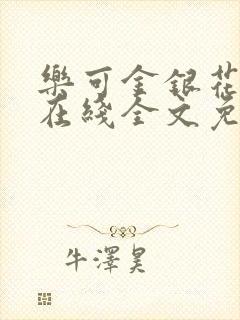 樂可金銀花
在綫全文免
牛澤昊